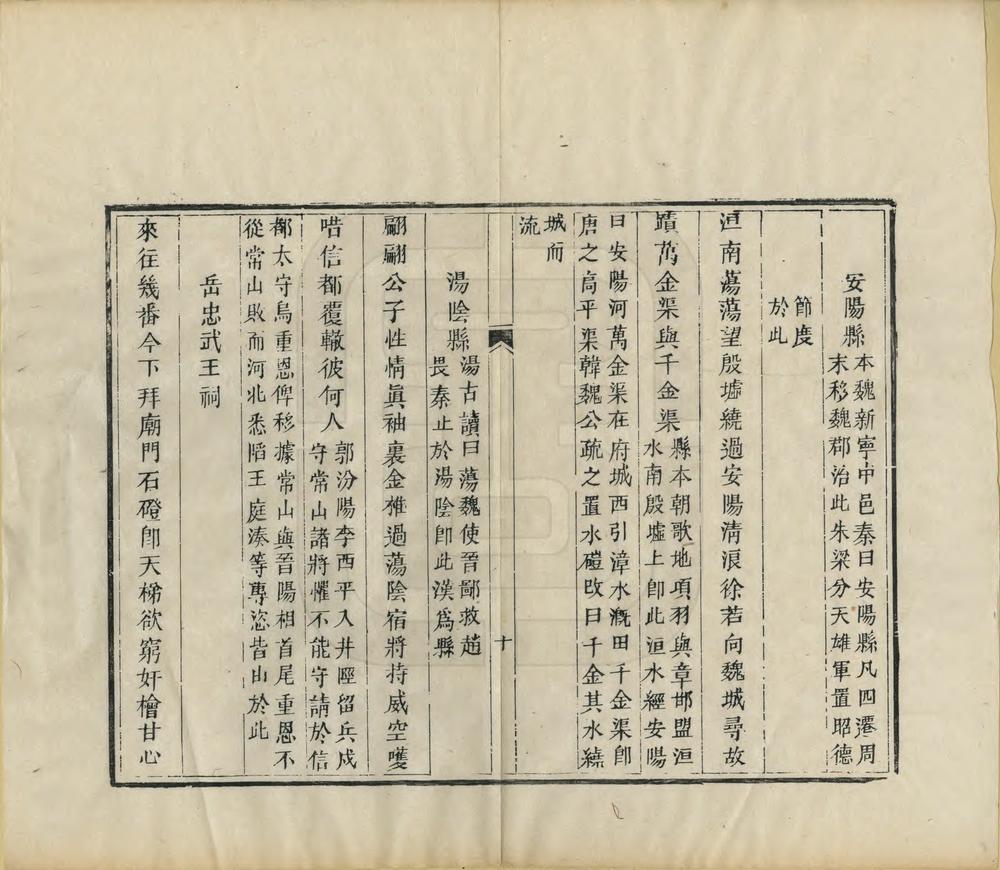 安陽縣
本魏新寧中邑秦曰安陽縣凡四遷周
末移魏郡治此朱梁分天雄軍置昭德
節度
於此
洹南蕩蕩望殷墟繞過安陽淸浪徐若向魏城尋故
蹟萬金渠與千金渠
縣本朝歌地項羽與章邯盟洹
水南殷墟上卽此洹水經安陽
曰安陽河萬金渠在府城西引漳水漑田千金渠卽
唐之高平渠韓魏公疏之置水磑改曰千金其水繞
城而
流
十
湯陰縣
湯古讀曰蕩魏使晉鄙救趙
畏秦止於湯陰卽此漢爲縣
翩翩公子性情眞袖裏金椎過蕩陰宿將持威空嚄
唶信都覆轍彼何人
郭汾陽李西平入井陘留兵戍
守常山諸將懼不能守請於信
都太守烏重恩俾移據常山與晉陽相首尾重恩不
從常山敗而河北悉陷王庭湊等專恣皆由於此
岳忠武王祠
來往幾番今下拜廟門石磴卽天梯欲窮奸檜甘心